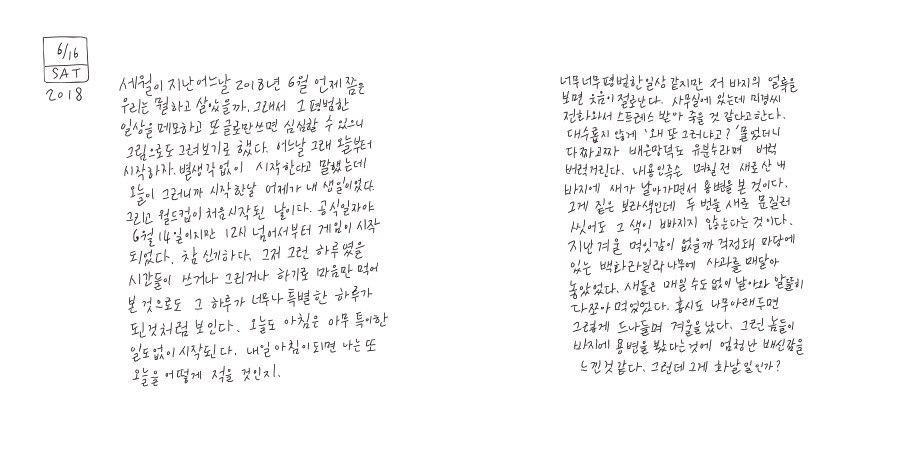 6/16
SAT
2018
세월이 지난 어느날 2018년 6월 언제쯤은
우리는 뭘하고 살았을까. 그래서 그 평범한
일상을 메모하고 또 글로만쓰면 심심할 수 있으니
그림으로도 그려보기로 했다. 어느날 그래 오늘부터
시작하자. 별생각없이 시작한다고 말했는데
오늘이 그러니까 시작한날 어제가 내 생일이었다.
그리고 월드컵이 처음시작된 날이다. 공식일자야
6월 14일이지만 12시 넘어서부터 게임이 시작
되었다. 참 신기하다. 그저 그런 하루였을
시간들이 쓰거나 그리거나 하기로 마음만 먹어
본 것으로도 그 하루가 너무나 특별한 하루가
된것처럼 보인다. 오늘도 아침은 아무 특이한
일도없이 시작된다. 내일 아침이 되면 나는 또
오늘을 어떻게 적을 것인지.
너무너무 평범한 일상 같지만 저 바지의 얼룩을
보면 웃음이 절로난다. 사무실에 있는데 미경씨
전화와서 스트레스 받아 죽을 것 같다고한다.
대수롭지 않게 '왜 또 그러냐고?' 물었더니
다짜고짜 배은망덕도 유분수라며 버럭
버럭거린다. 내용인즉슨 며칠 전 새로 산 내
바지에 새가 날아가면서 용변을 본 것이다.
그게 짙은 보라색인데 두 번을 새로 문질러
씻어도 그 색이 빠바지지 않는다는 것이다.
지난 겨울 먹잇감이 없을까 걱정돼 마당에
있는 백화라일락나무에 사과를 매달아
놓았었다. 새들은 매일 수도 없이 날아와 알뜰히
다쪼아 먹었었다. 홍시도 나무아래 두면
그렇게 드나들며 겨울을 났다. 그런 놈들이
바지에 용변을 봤다는것에 엄청난 배신감을
느낀것 같다. 그런데 그게 화날 일인가?